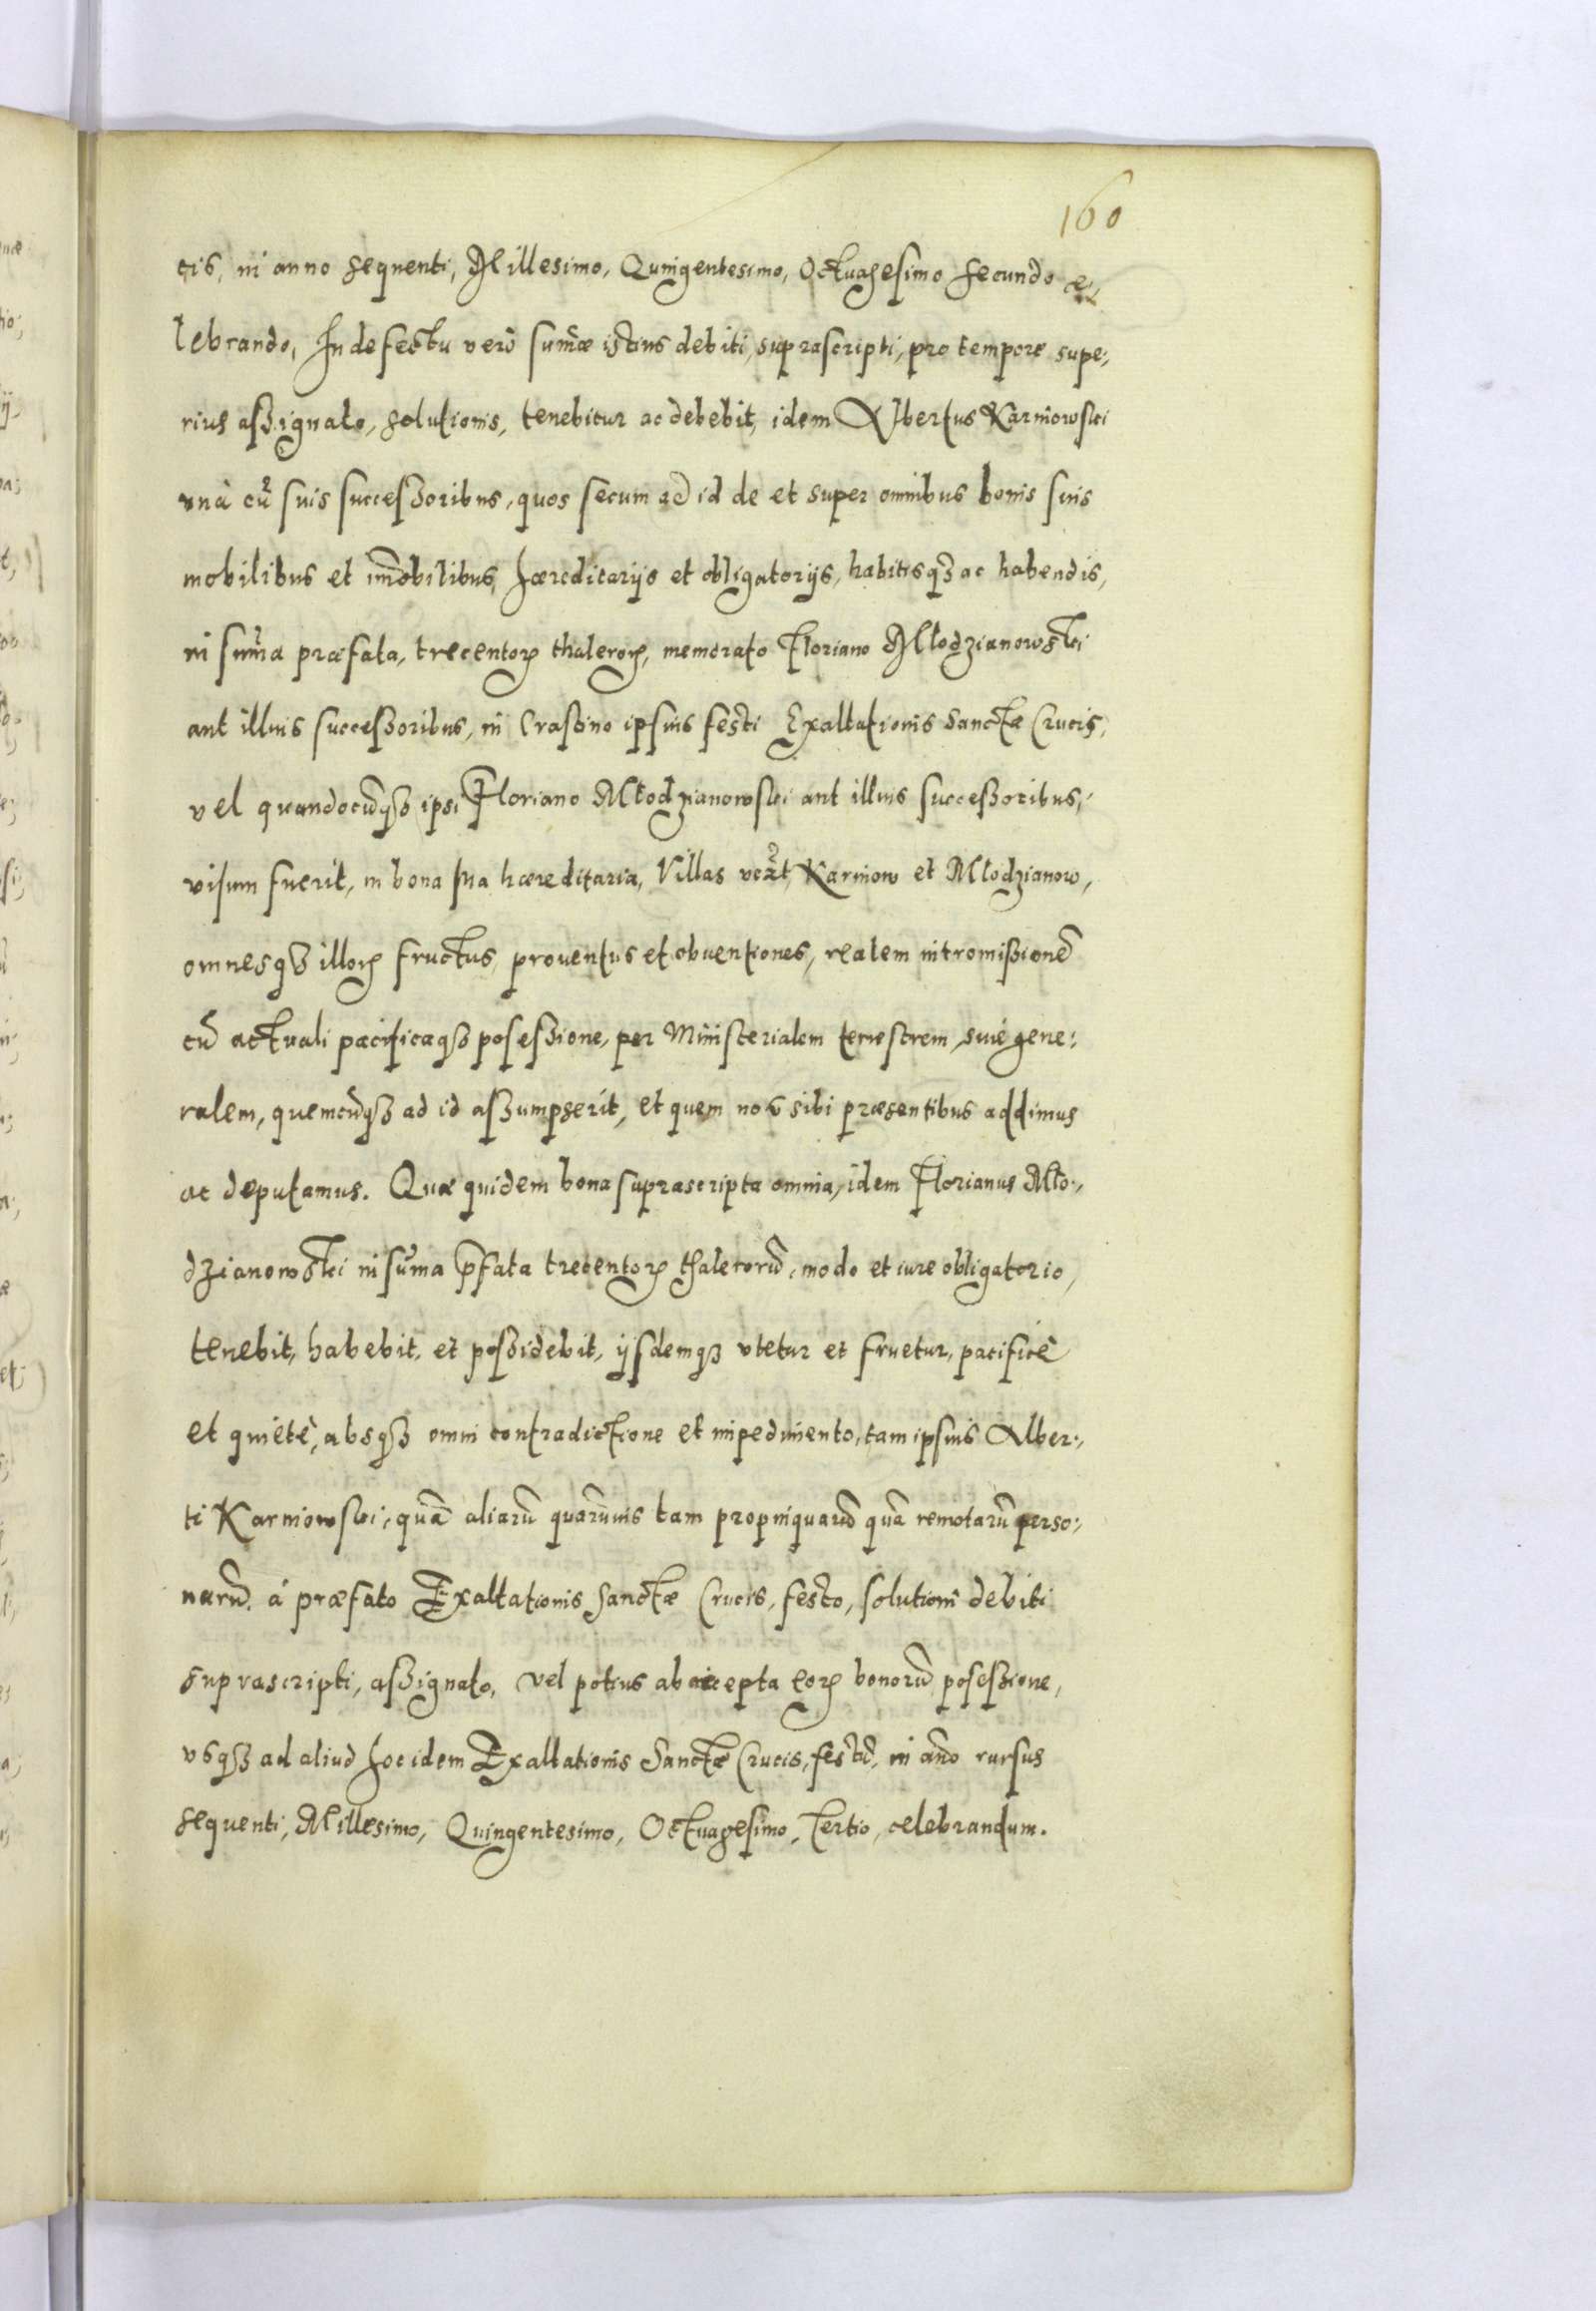 160
cis, in anno sequenti, Millesimo, Quingentesimo, Octuagesimo secundo ce,
lebrando, In defectu verò sum̃æ istius debiti, suprascripti, pro tempore supe:,
rius aſsignato, solutionis, tenebitur ac debebit, idem Albertus Karniowski
vnà cũ suis succeſsoribus, quos secum ad id de et super omnibus bonis suis
mobilibus et im̃obilibus, hæreditarijs et obligatorijs, habitisqȝ ac habendis,
in sum̃a præfata, trecentoꝝ thaleroꝝ, memorato Floriano Młodzianowski
aut illius succeſsoribus, in Crastino ipsius festi Exaltationis Sanctæ Crucis,
vel quandocũqȝ ipsi Floriano Młodzianowski aut illius succeſsoribus,
visum fuerit, in bona sua hæreditaria, Villas vcãt, Karniow et Młodzianow,
omnesqȝ illoꝝ fructus, prouentus et obuentiones, realem intromiſsionẽ
cũ actuali pacificaqȝ poseſsione, per Ministerialem terrestrem, siue gene:,
ralem, quemcũqȝ ad id aſsumpserit, et quem nos sibi præsentibus addimus
ac deputamus. Quæ quidem bona suprascripta omnia, idem Florianus Mło:,
dzianowski in sum̃a p̃fata trecentoꝝ thalerorũ, modo et iure obligatorio,
tenebit, habebit, et poſsidebit, ijsdemqȝ vtetur et fruetur, pacificè
et quietè, absqȝ omni contradictione et impedimento, tam ipsius Alber:,
ti Karniowski, quã aliarũ quarũuis tam propinquarũ quã remotarũ perso:,
narũ, á præfato Exaltationis Sanctæ Crucis, festo, solutioni debiti
suprascripti, aſsignato, vel potius ab accepta eoꝝ bonorũ poseſsione,
vsqȝ ad aliud hoc idem Exaltationis Sanctæ Crucis, festũ, in ãno rursus
sequenti, Millesimo, Quingentesimo, Octuagesimo, tertio, celebrandum.